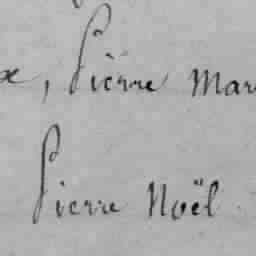 , Pierre Mar
Pierre Noël